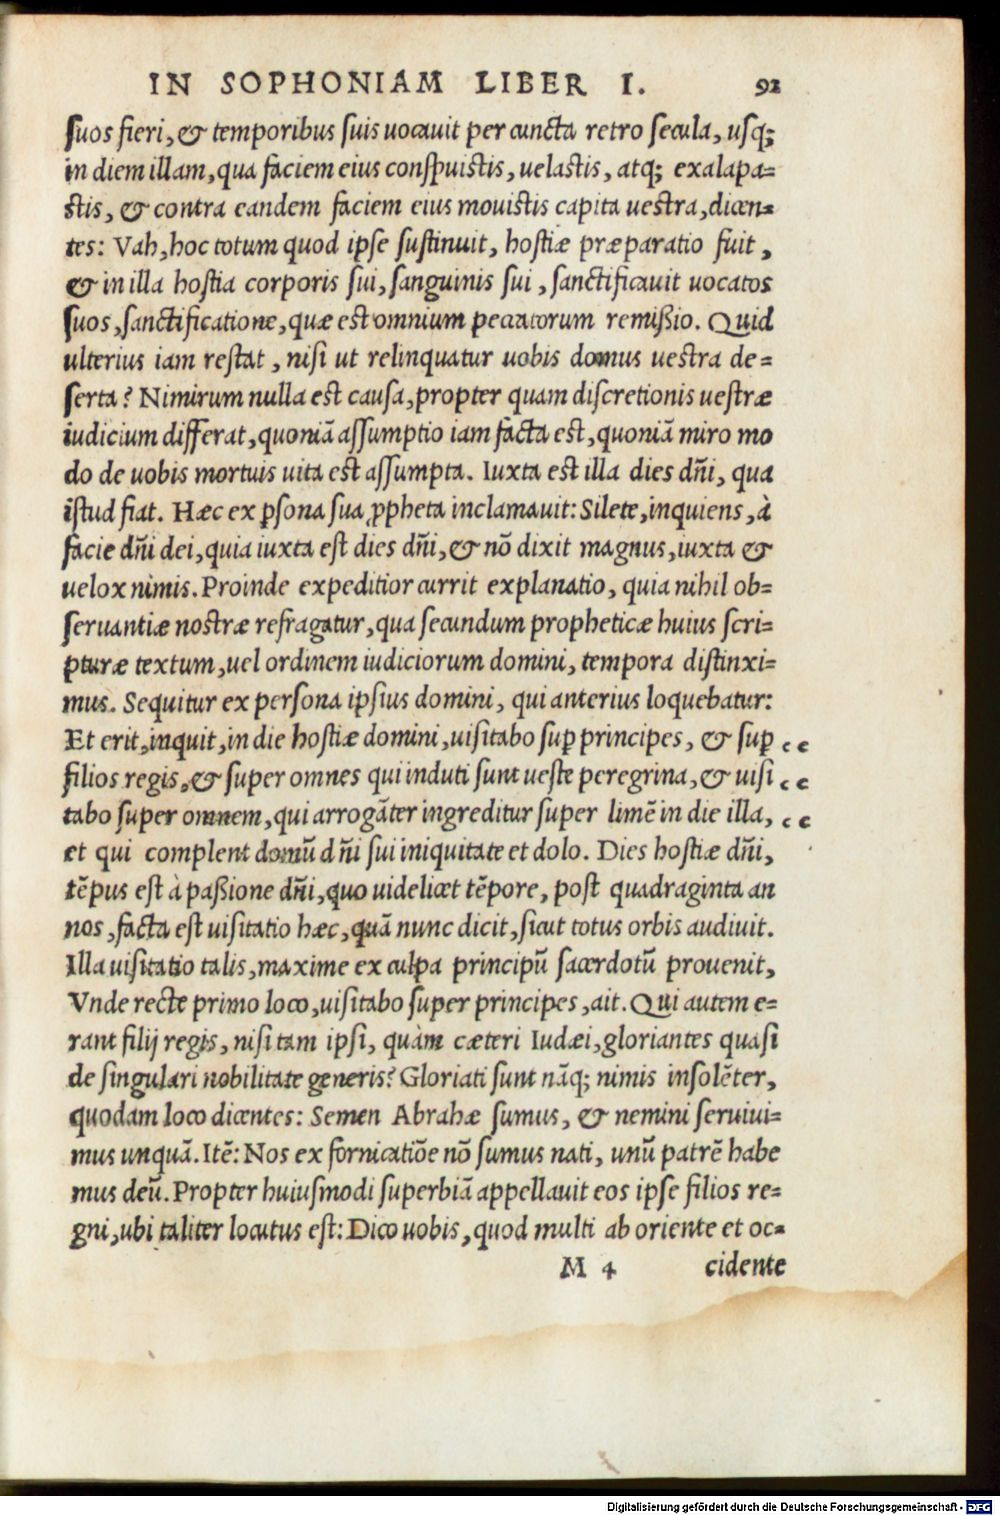 IN SOPHONIAM LIBER I. 92
suos fieri, & temporibus suis uocauit per cuncta retro secula, usq;
in diem illam, qua faciem eius conspuistis, uelastis, atq; exalapa=
stis, & contra eandem faciem eius mouistis capita uestra, dicen=
tes: Vah, hoc totum quod ipse sustinuit, hostiæ præparatio fuit,
& in illa hostia corporis sui, sanguinis sui, sanctificauit uocatos
suos, sanctificatione, quæ est omnium peccatorum remißio. Quid
ulterius iam restat, nisi ut relinquatur uobis domus uestra de=
serta? Nimirum nulla est causa, propter quam discretionis uestræ
iudicium differat, quoniã assumptio iam facta est, quoniã miro mo
do de uobis mortuis uita est assumpta. Iuxta est illa dies dñi, qua
istud fiat. Hæc ex ꝑsona sua ꝓpheta inclamauit: Silete, inquiens, à
facie dñi dei, quia iuxta est dies dñi, & nõ dixit magnus, iuxta &
uelox nimis. Proinde expeditior currit explanatio, quia nihil ob=
seruantiæ nostræ refragatur, qua secundum propheticæ huius scri=
pturæ textum, uel ordinem iudiciorum domini, tempora distinxi=
mus. Sequitur ex persona ipsius domini, qui anterius loquebatur:
Et erit, inquit, in die hostiæ domini, uisitabo suꝑ principes, & suꝑ „
filios regis, & super omnes qui induti sunt ueste peregrina, & uisi „
tabo super omnem, qui arrogãter ingreditur super limẽ in die illa, „
et qui complent domũ dñi sui iniquitate et dolo. Dies hostiæ dñi,
tẽpus est à paßione dñi, quo uidelicet tẽpore, post quadraginta an
nos, facta est uisitatio hæc, quã nunc dicit, sicut totus orbis audiuit.
Illa uisitatio talis, maxime ex culpa principũ sacerdotũ prouenit,
Vnde recte primo loco, uisitabo super principes, ait. Qui autem e=
rant filij regis, nisi tam ipsi, quàm cæteri Iudæi, gloriantes quasi
de singulari nobilitate generis? Gloriati sunt nãq; nimis insolẽter,
quodam loco dicentes: Semen Abrahæ sumus, & nemini seruiui=
mus unquã. Itẽ: Nos ex fornicatiõe nõ sumus nati, unũ patrẽ habe
mus deũ. Propter huiusmodi superbiã appellauit eos ipse filios re=
gni, ubi taliter locutus est: Dico uobis, quod multi ab oriente et oc=
M 4 cidente
Digitalisierung gefördert durch die Deutsche Forschungsgemeinschaft - DFG